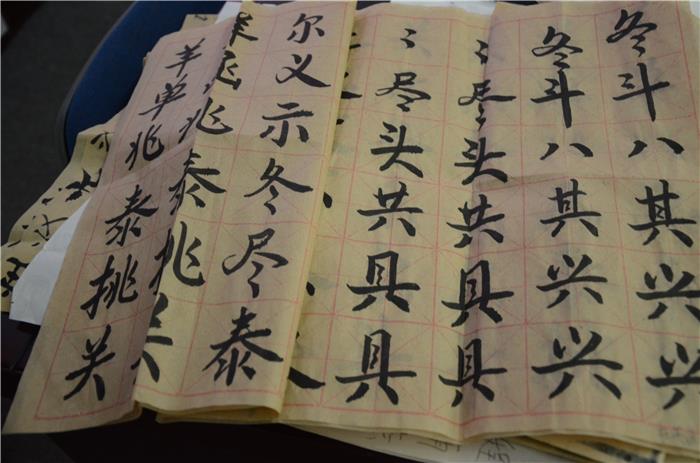 冬斗八其兴兴
冬斗八其兴兴
尽头共具具
尽头共具具
尔义示冬尽泰
兆泰挑关
羊单兆泰挑关